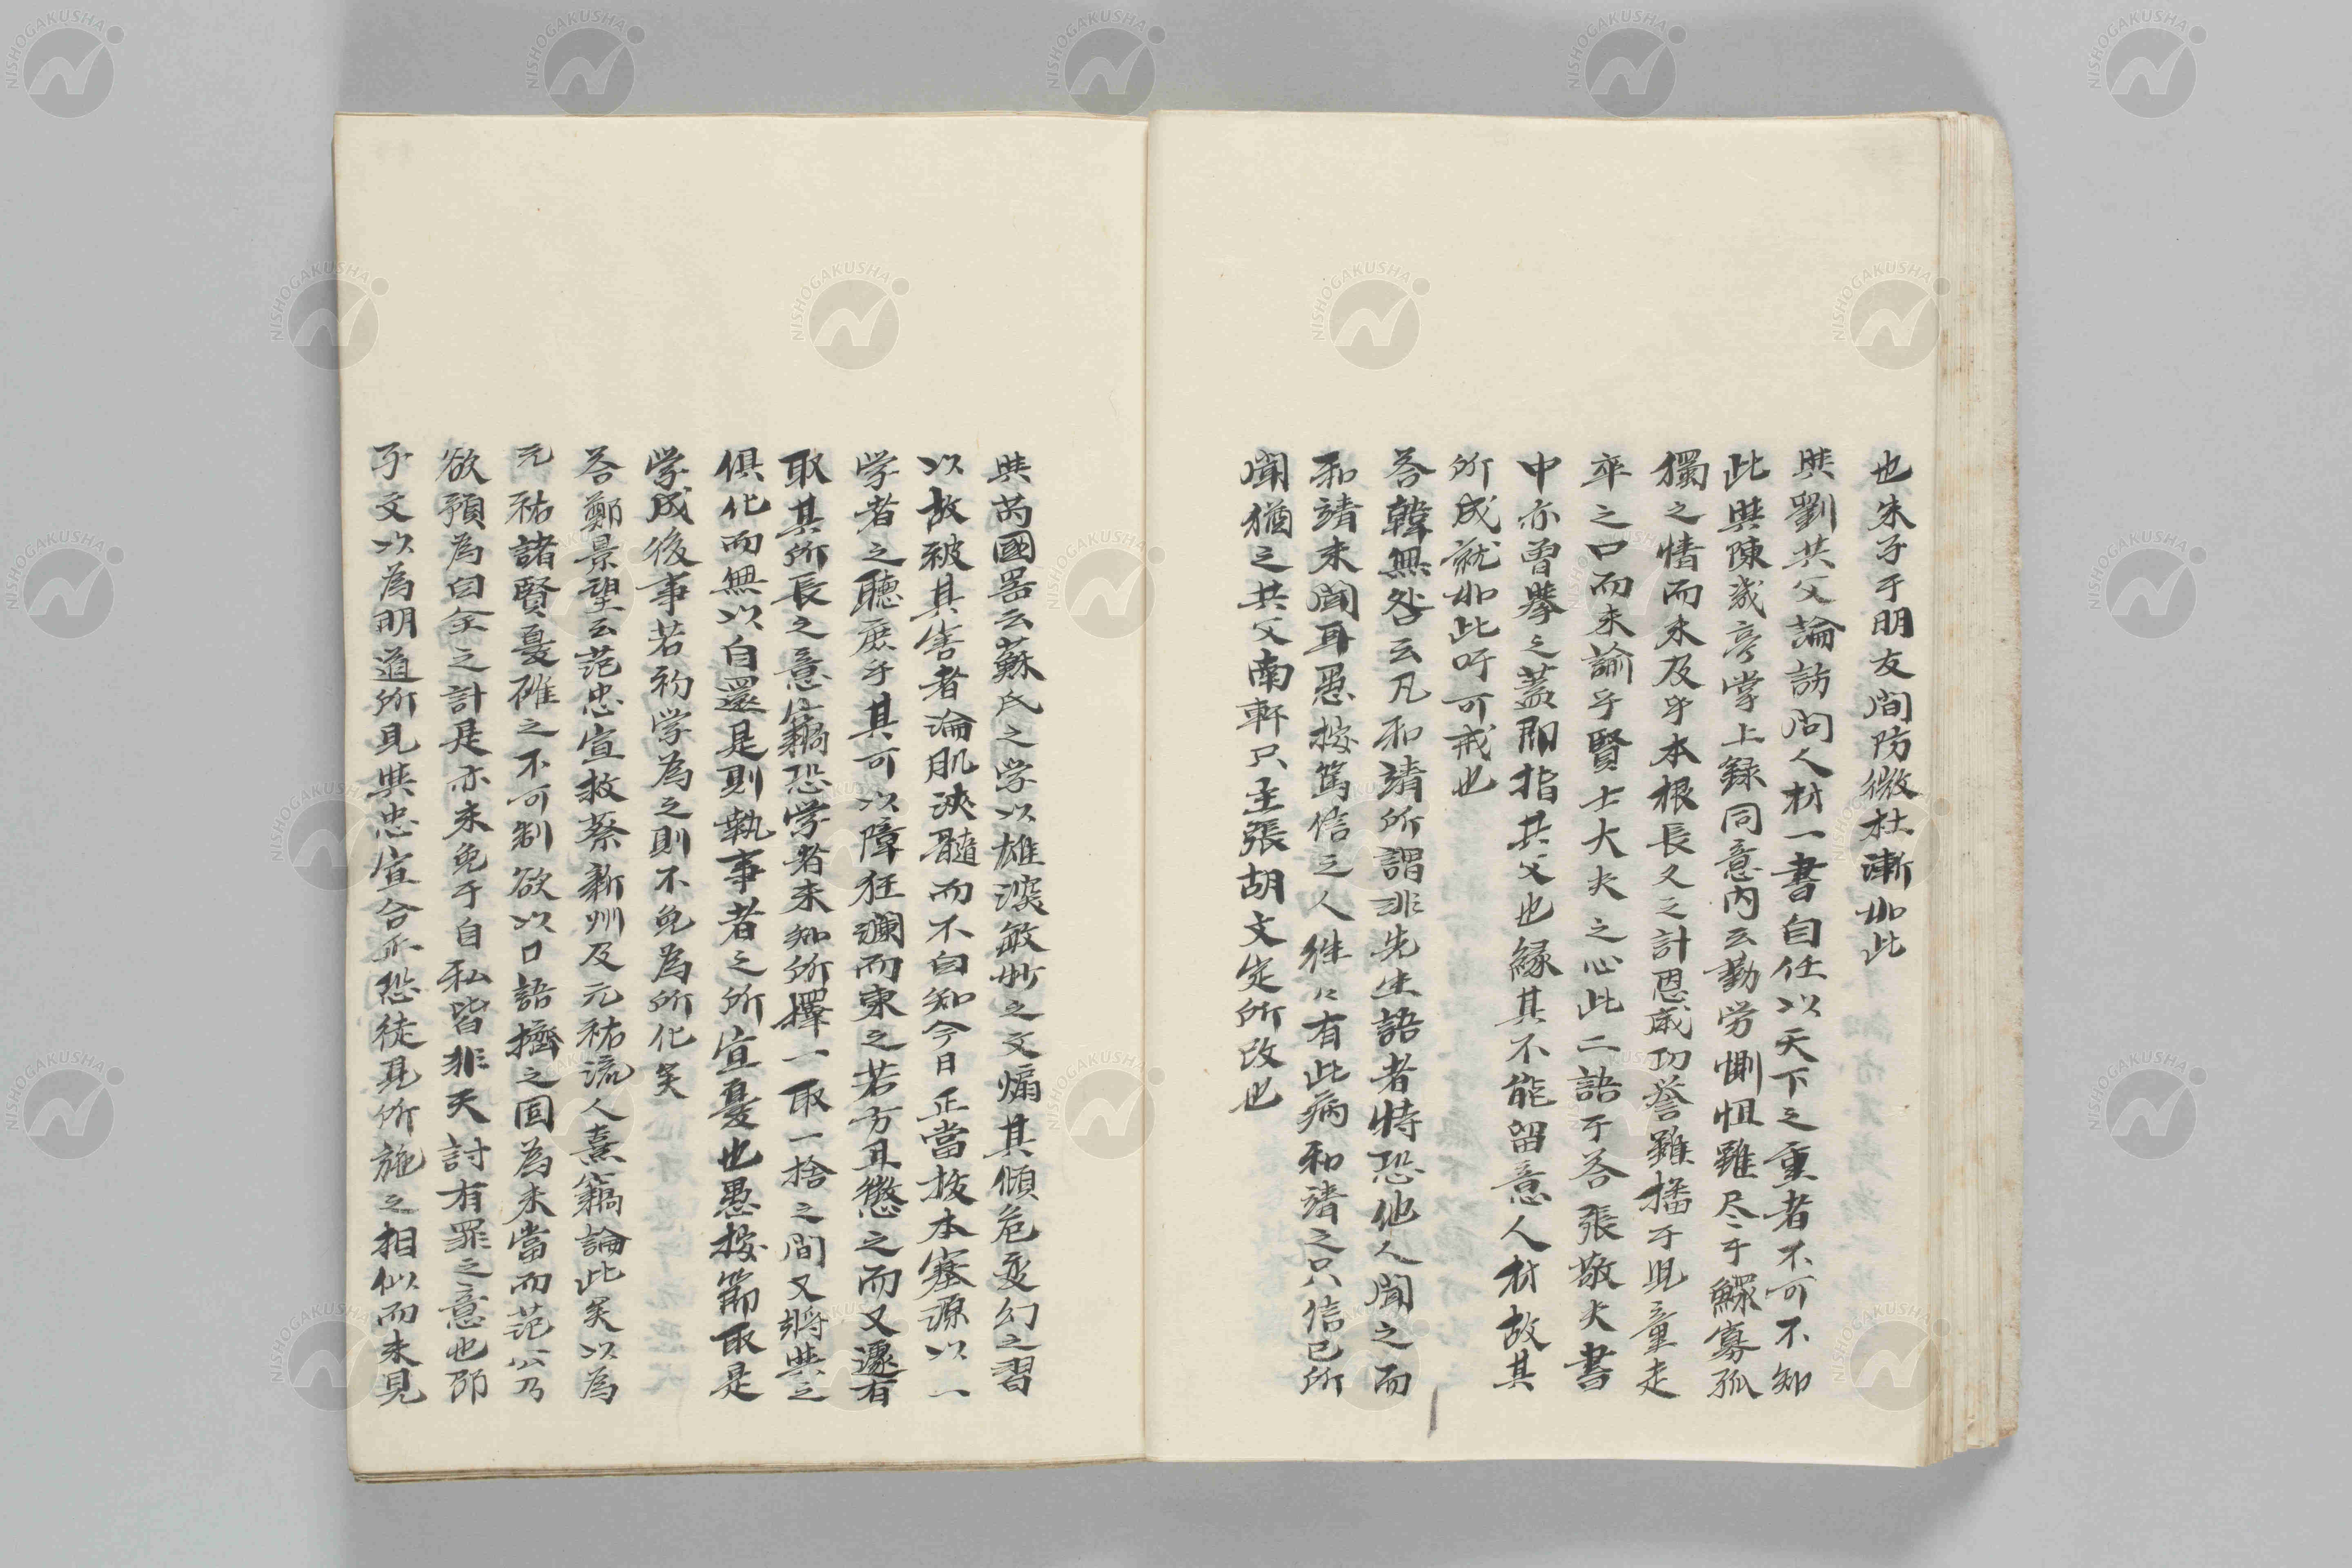 也朱子于明友間防微杜漸如此
與劉共父論訪問人材一書自任以天下之重者不可不知
此與陳戎亭掌上録同意内云勤労惻怛雖尽于鰥寡孤
獨之情而未及乎本根長久之計恩威功誉雖播于児童走
卒之口而未諭乎賢士大夫之心此二語于荅張敬夫書
中亦曽擧之蓋即指共父也縁其不能留意人材故其
所成就如此吁可戒也
荅韓無咎云凡和靖所謂非先生語者特恐他人聞之而
和靖未聞耳愚按篤信之人徃〻有此病和靖之只信已所
聞猶之共父南軒只主張胡文定所改也
與芮國噐云蘇氏之学以雄深敏妙之文煽其傾危变幻之習
以故被其害者淪肌浹髓而不自知今日正當拔本塞源以一
学者之聽庶乎其可以障狂瀾而東之若方且懲之而又遽有
取其所長之意竊恐学者未知所擇一取一捨之間又將與之
俱化而無以自還是則執事者之所宜憂也愚按節取是
学成後事若初学為之則不免為所化矣
荅鄭景望云范忠宣救蔡新州及元祐流人熹竊論此矣以為
元祐諸賢憂確之不可制欲以口語擠之固為未當而范公乃
欲預為自全之計是亦未免于自私皆非天討有罪之意也邵
子文以為明道所見與忠宣合正恐徒見所施之相似而未見